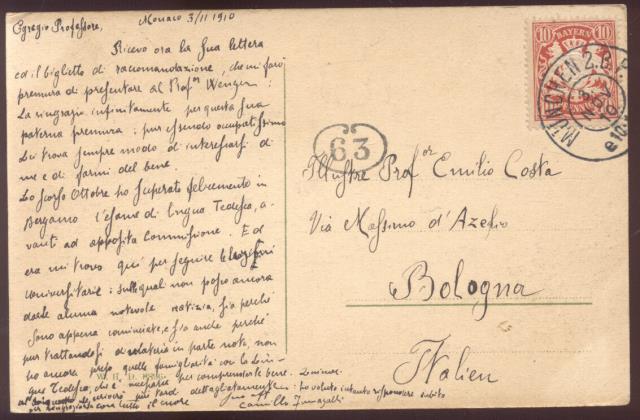 Egregio Professore, Monaco 3/11 1910
Ricevo ora la Sua lettera
ed il biglietto di raccomandazione, che mi farò
premura di presentare al Prof.or Wenger:
La ringrazio infinitamente per questa Sua
paterna premura: pur essendo occupatissimo
Lei trova sempre modo di interessarsi di
me e di farmi del bene.
Lo scorso Ottobre ho superato felicemente in
Bergamo l'esame di lingua Tedesca, a-
vanti ad apposita Commissione. Ed
ora mi trovo qui per seguire le lezioni
universitarie: sulle quali non posso ancora
darle alcuna notevole notizia, sia perchè
sono appena cominciate, e sia anche perchè
pur trattandosi di materia in parte nota, non
ho ancora preso quella famigliarità con la Lin-
gua Tedesca, che è necessaria per comprendere bene.
scriverò più tardi dettagliatamente: ho voluto intanto rispondere subito
per ringraziarla con tutto il cuore
Camillo Fumagalli
63
BAYERN
10
10
PFENNIG
MÜNCHEN 2. B. P.
Illustre Prof.or Emilio Costa
Via Massimo d'Azelio
Bologna
Italien